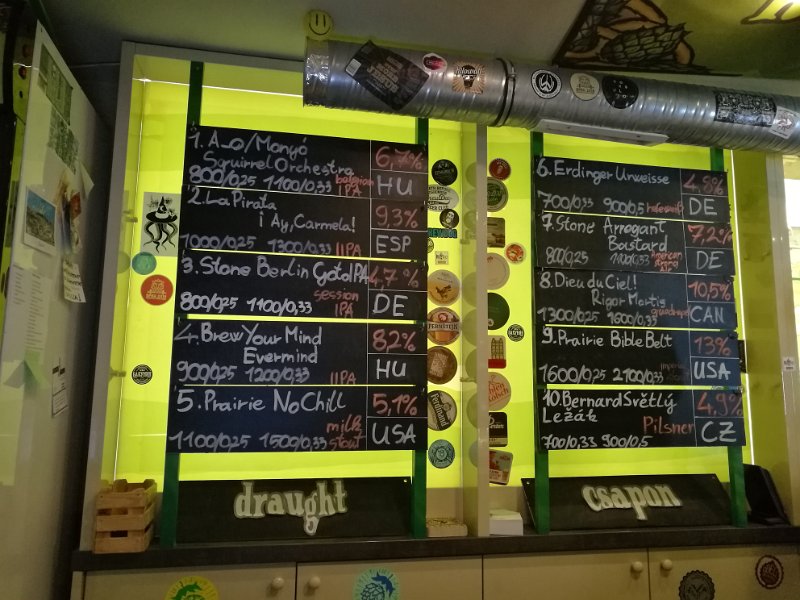 1. A_o/Monyó
Squirrel Orchestra
800/0,25 1100/0,33 belgian IPA
6,7%
HU
2. La Pirata
i Ay, Carmela!
1000/0,25 1300/0,33 IIPA
9,3%
ESP
3. Stone Berlin GotoIPA
800/0,25 1100/0,33 session IPA
4,7%
DE
4. Brew Your Mind
Evermind
900/0,25 1200/0,33 IIPA
8,2%
HU
5. Prairie No Chill
milk stout
1100/0,25 1500/0,33
5,1%
USA
draught
6. Erdinger Urweisse
700/0,33 900/0,5 hefeweif
4,8%
DE
7. Stone Arrogant
Bastard
800/0,25 American Strong Ale
7,2%
DE
8. Dieu du Ciel!
Rigor Mortis
1300/0,25 1600/0,33 quadrupel
10,5%
CAN
9. Prairie Bible Belt
1600/0,25 2100/0,33 imperial
13%
USA
10. Bernard Světlý
Ležák Pilsner
700/0,33 900/0,5
4,9%
CZ
csapon